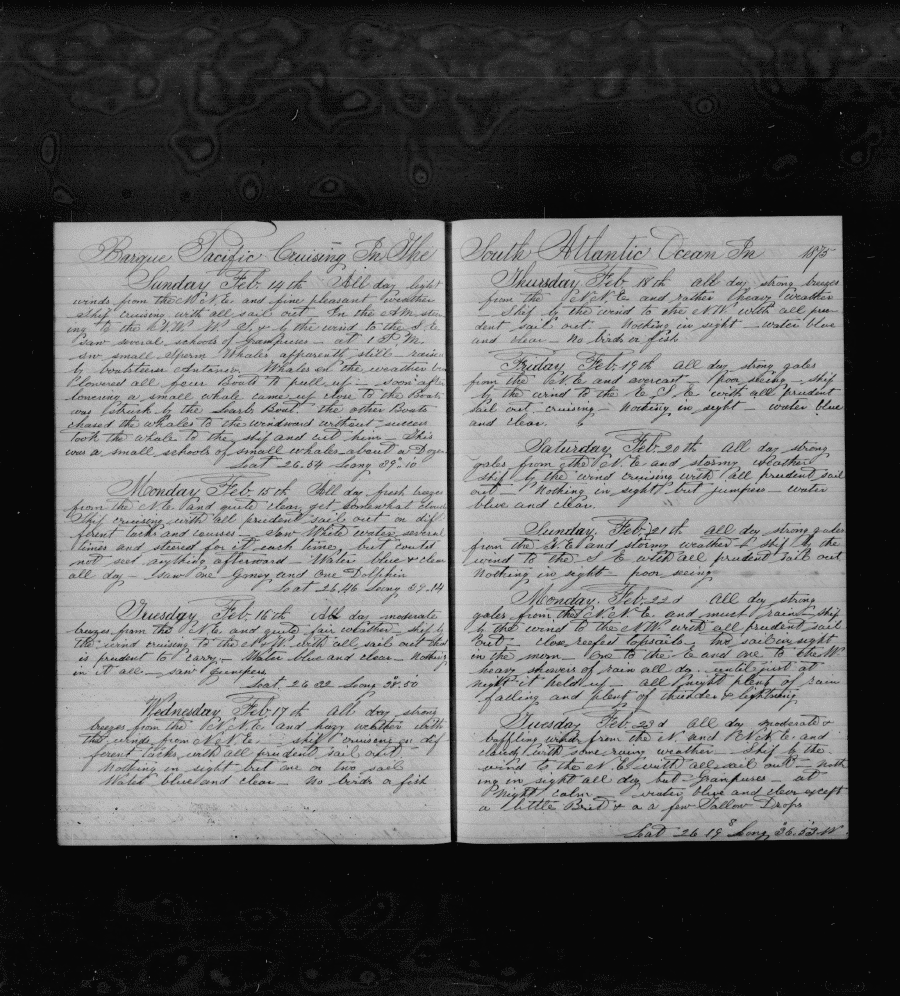 Barque Pacific Cruising In The
Sunday Feb. 14th All day light
winds from the N.N.E. and fine pleasant weather
Ship cruising with all sail out. In the A.M. steer
ing to the W. by the wind to the
saw several schools of Grampuses — at 1 P.M.
small Sperm Whales apparently still — raised
by boatsteerer Whales on the weather
lowered all four Boats to pull up — soon after
lowering a small whale came up close to the Boats
was struck by the Boat the other Boats
chased the whales to the windward without success
took the whale to the ship and cut him — This
was a small schools of small whales about a Dozen
Lat 26.54 Long 39.10
Monday Feb. 15th All day fresh breezes
from the N.E. and quite clear yet somewhat
Ship cruising with all prudent sail out on dif
ferent tacks and courses — Saw White water several
times and steered for it each time but could
not see anything afterward Water blue & clear
all day — Saw one Goney and One Dolphin
Lat 26.46 Long 39.14
Tuesday Feb. 16th All day moderate
breezes from the N.E. and quite fair weather — ship by
the wind cruising to the N.W. with all sail out that
is prudent to carry — Water blue and clear — Nothing
in it all — saw Grampuses
Lat 26 22 Long 38.50
Wednesday Feb 17th All day strong
breezes from the N.N.E. and hazy weather with
the winds from N.N.E. — ship cruising on dif
ferent tacks with all prudent sail out
Nothing in sight but one or two sail
Water blue and clear — No birds or fish
South Atlantic Ocean In 1875
Thursday Feb 18th All day strong breezes
from the N.N.E. and rather heavy weather
Ship by the wind to the N.W. with all pru
dent sail out — Nothing in sight — water blue
and clear — No birds or fish
Friday Feb. 19th All day strong gales
from the N.E. and overcast — poor seeing — ship
by the wind to the E.S.E. with all prudent
sail out cruising — Nothing in sight — water blue
and clear.
Saturday Feb. 20th All day strong
gales from the N.E. and stormy weather
ship by the wind cruising with all prudent sail
out — Nothing in sight but jumpers — water
blue and clear.
Sunday Feb. 21th all day strong gales
from the N.E. and stormy weather & ship by the
wind to the N.E. with all prudent sail out
Nothing in sight — poor seeing
Monday Feb. 22d All day strong
gales from the N.N.E. and much rain Ship
by the wind to the N.W. with all prudent sail
out — close reefed topsails. Two sail in sight
in the morn One to the E and one to the W
heavy showers of rain all day until just at
night it held up — all night plenty of rain
falling and plenty of thunder & lightning
Tuesday Feb 23d All day moderate &
baffling winds from the N. and N.N.E. and
cloudy with some rainy weather — Ship by the
wind to the N.E. with all sail out — noth
ing in sight all day but Grampuses — at
Night calm — water blue and clear except
a little Brit & a a few Tallow Drops
Lat 26 19 S Long 36.53.W